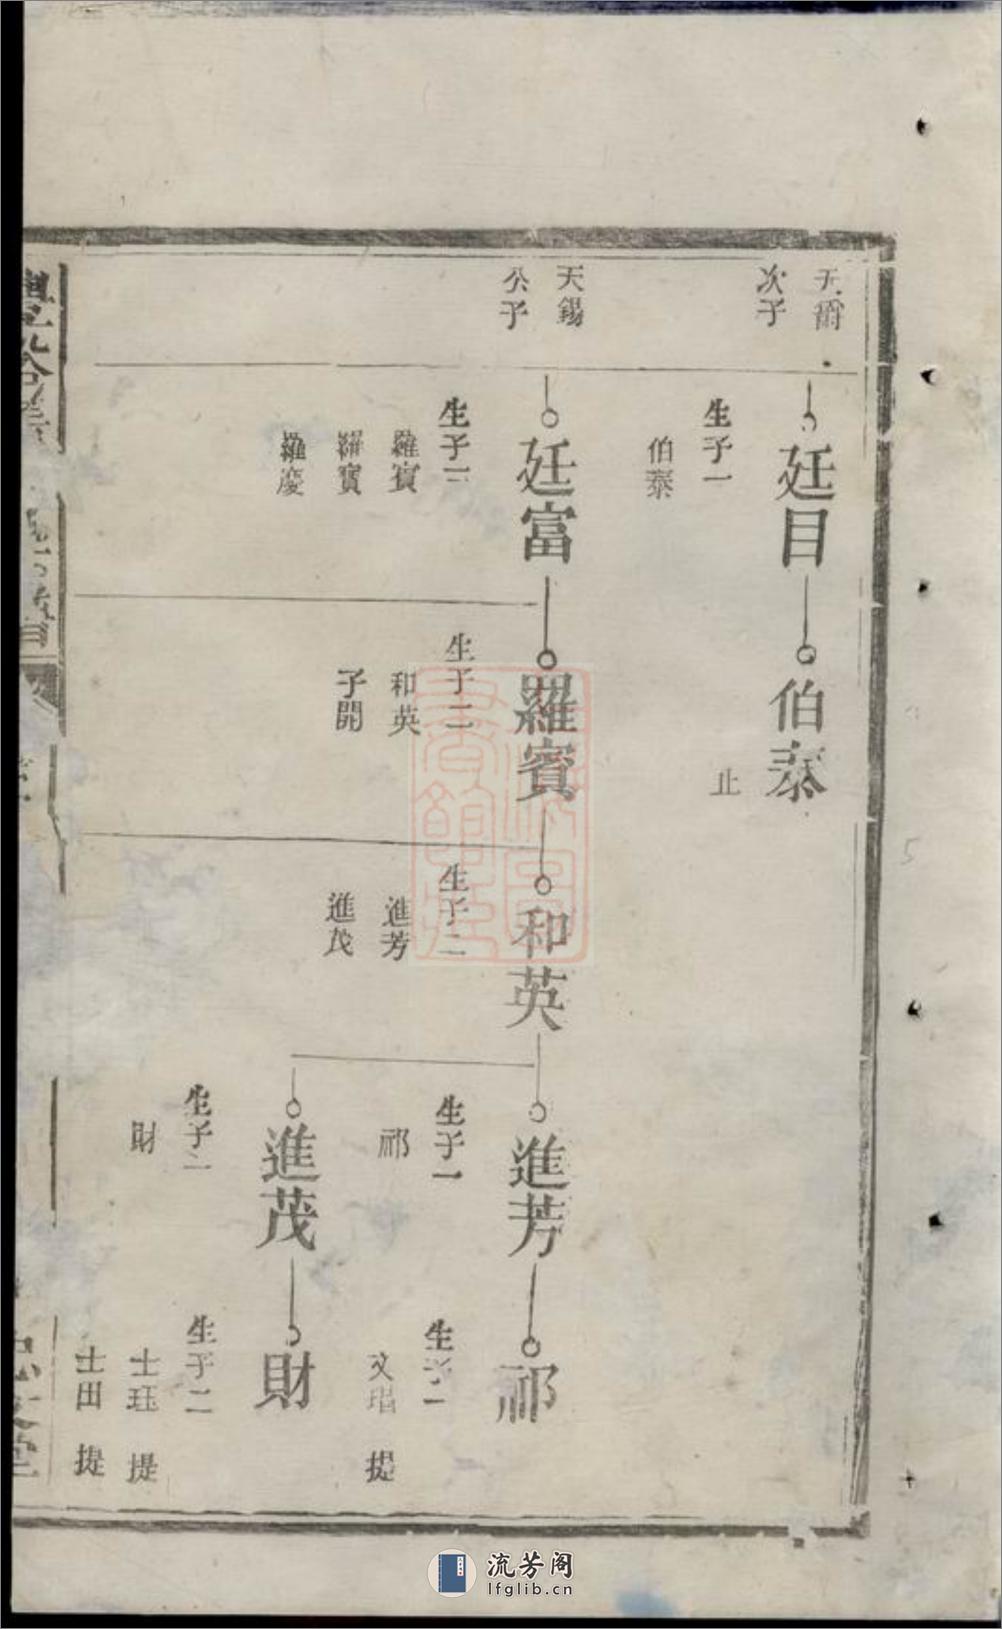 天爵
次子
廷目
生子一
伯泰
伯泰
止
天錫
公子
廷富
生子三
羅賓
羅寶
羅慶
羅賓
生子二
和英
子開
和英
生子二
進芳
進茂
進芳
生子一
祁
祁
生子一
文瑁 提
進茂
生子一
財
財
生子二
士珏 提
士田 提
流芳阁
lfglib.cn